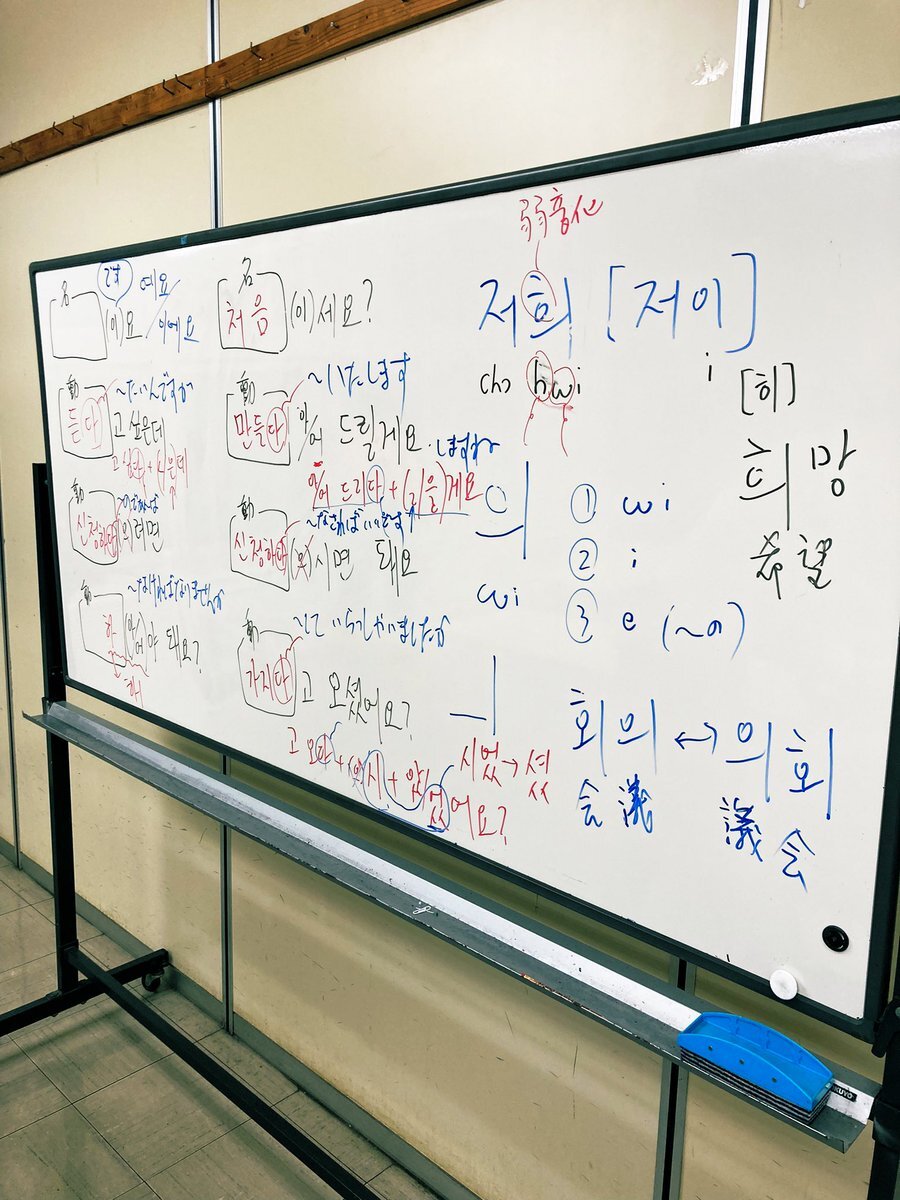 名
です 예요/이에요
(이)요
動 ~たいんですが
듣다 고 싶은데
고 싶다+(으)ㄴ데
動
신청하다 (으)려면
動 ~なければなりませんか
하 (았/어)야 돼요?
해
名
처음 (이)세요?
動 ~いたします
만들다 아/어 드릴게요. しますね
아/어 드리다+(ㄹ/을)게요
動 ~なさればいいです
신청하다 (으)시면 돼요
動 ~していらっしゃいましたか
가지다 고 오셨어요?
고 오다+(으)시+았/었어요?
시었→셨
弱音化
저희 [저이]
cho hwi i
[히]
희망
希望
의
wi
① wi
② i
③ e (~の)
ㅢ
회의 ↔ 의회
会議 議会
KOKUYO